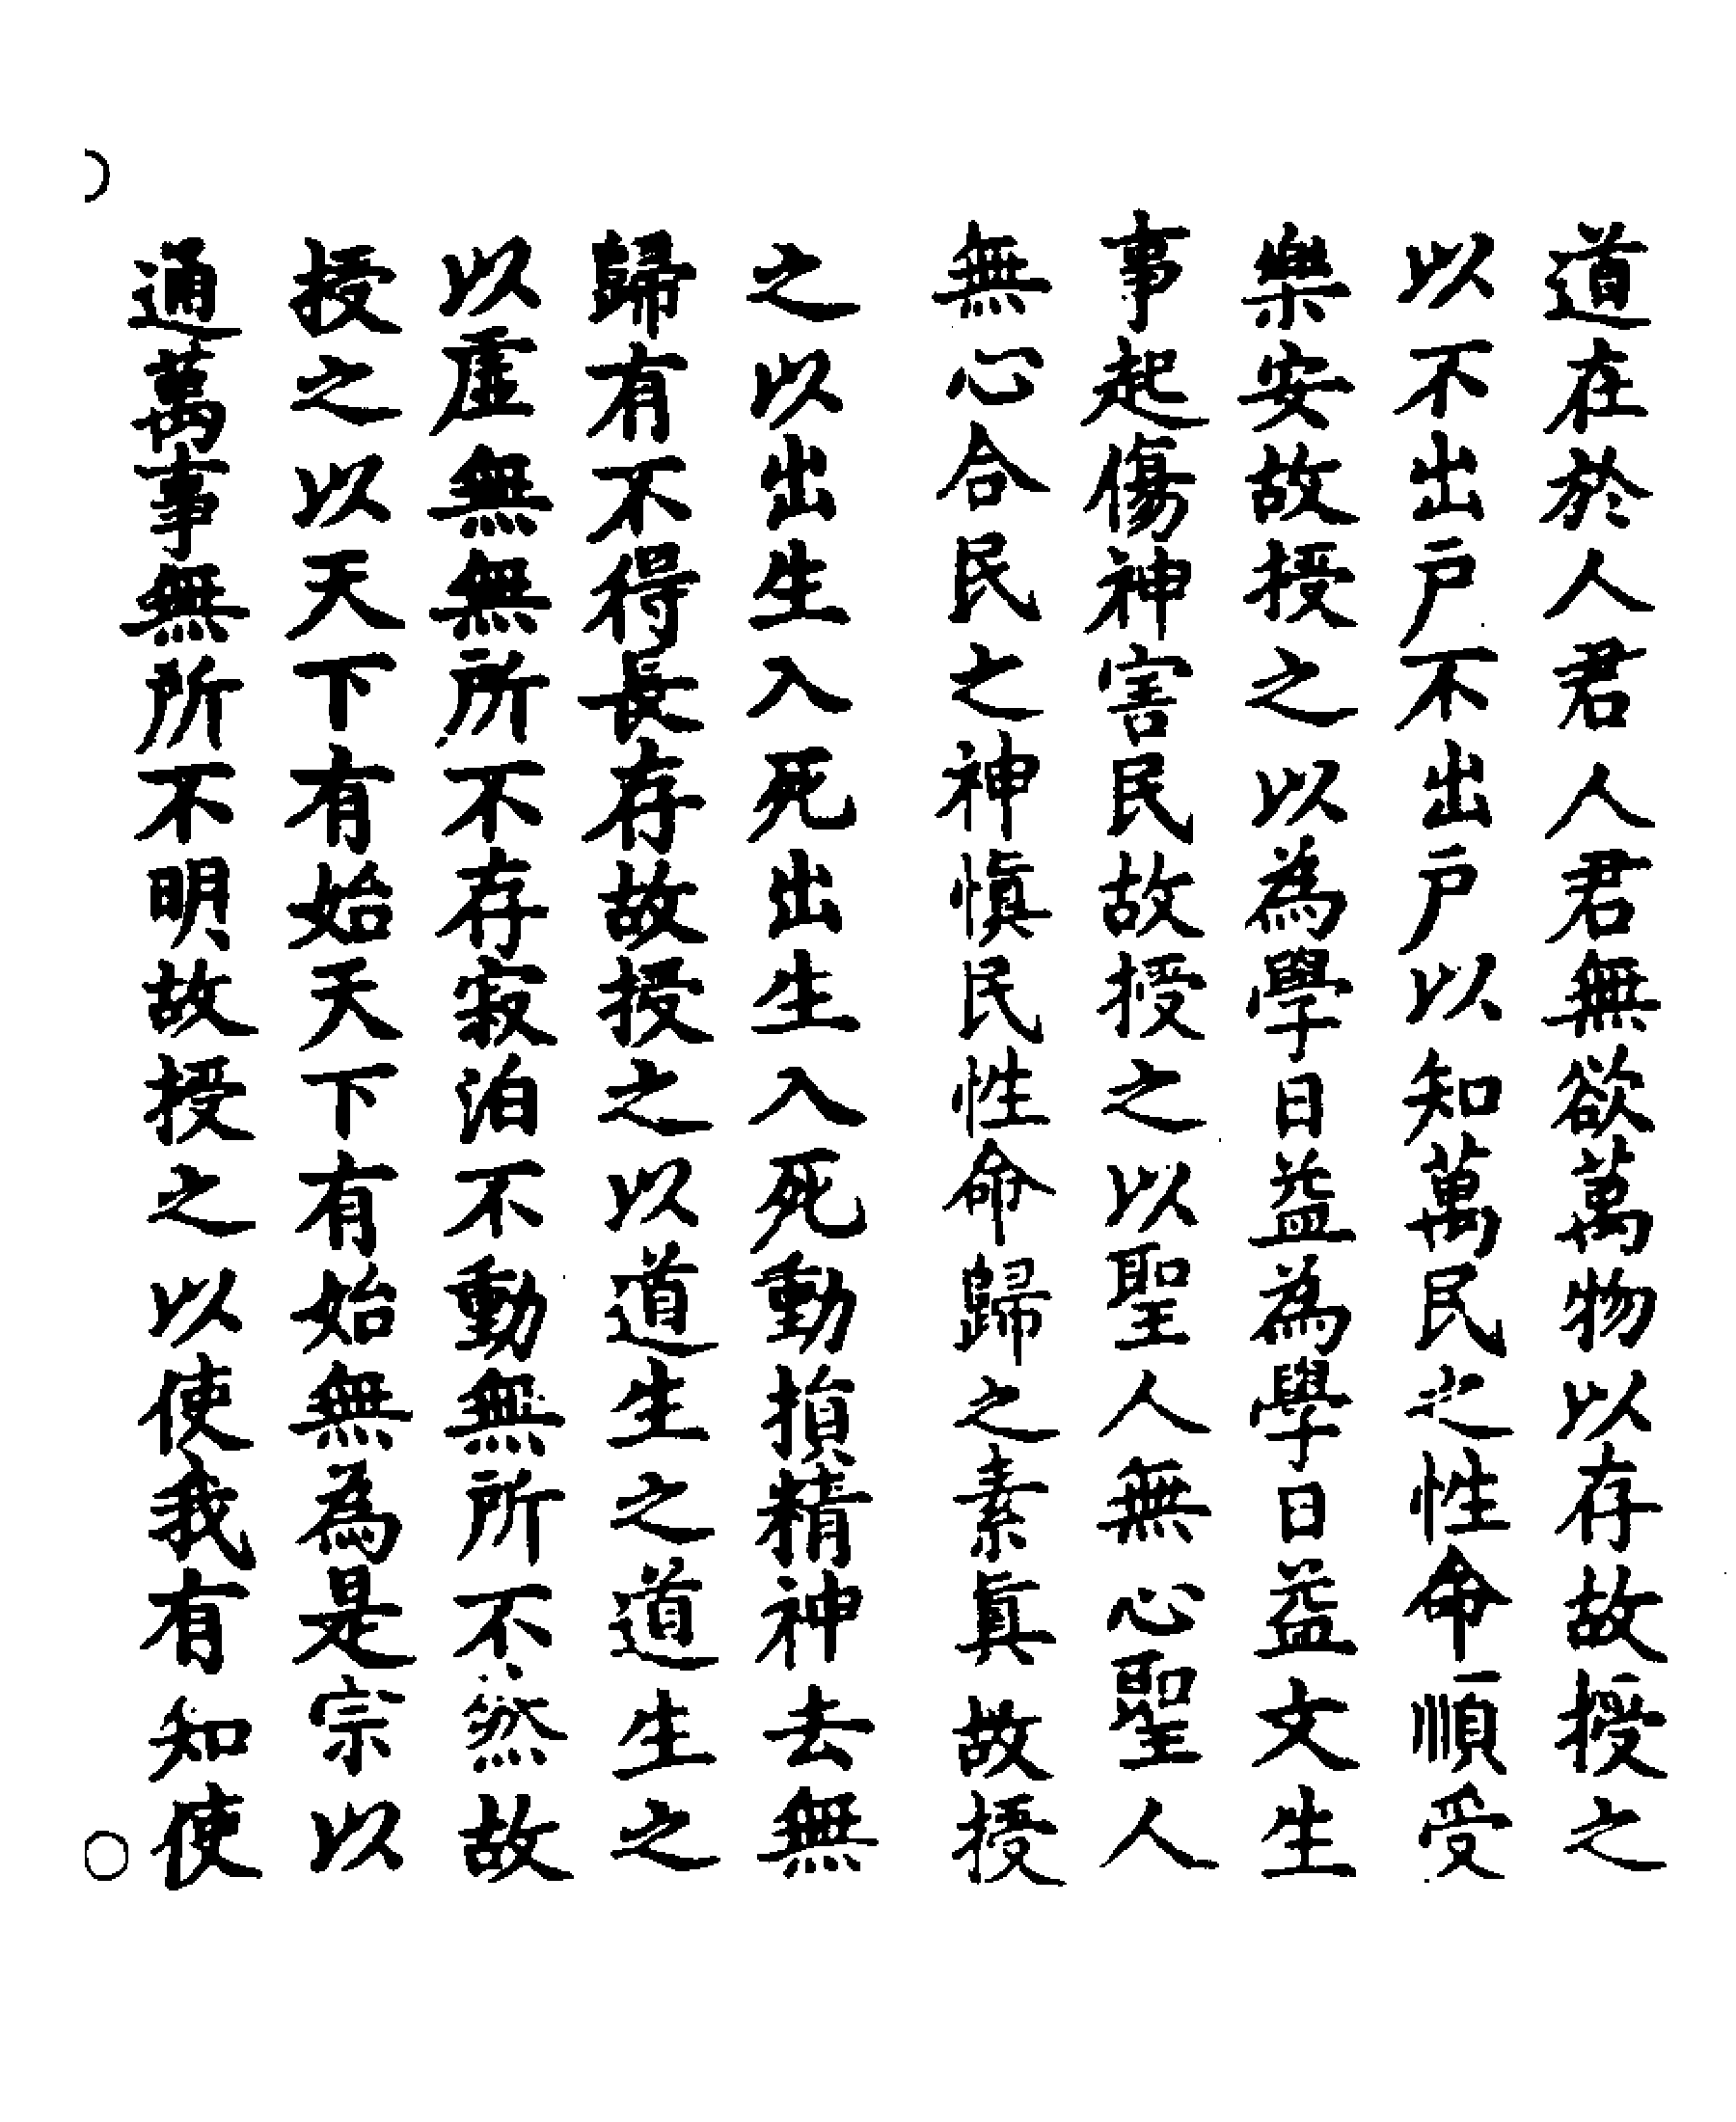 道在於人君人君無欲萬物以存故授之
以不出戶不出戶以知萬民之性命順受
樂安故授之以為學日益為學日益文生
事起傷神害民故授之以聖人無心聖人
無心合民之神慎民性命歸之素真故授
之以出生入死出生入死動損精神去無
歸有不得長存故授之以道生之道生之
以虛無無所不存寂泊不動無所不然故
授之以天下有始天下有始無為是宗以
通萬事無所不明故授之以使我有知使